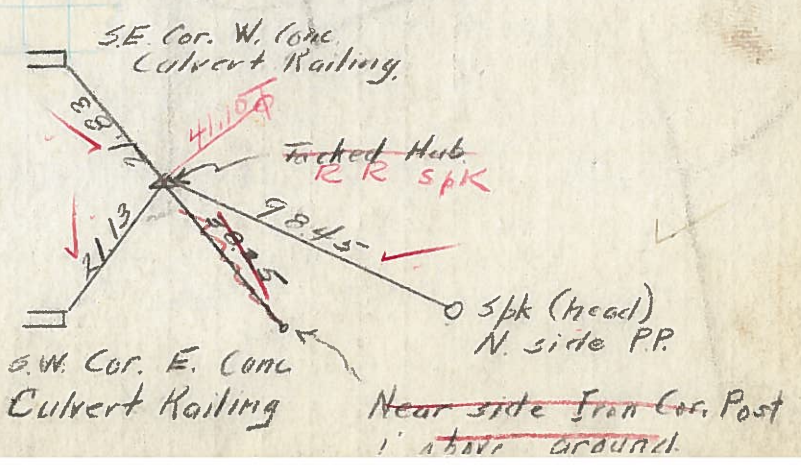 S.E. Cor. W. Conc.
Culvert Railing.
21.83
41.10
Tacked Hub.
R R SpK
98.45
21.13
38.25
Spk (head)
N. side P.P.
S.W. Cor. E. Conc.
Culvert Railing
Near side Iron Cor. Post
1' above ground.